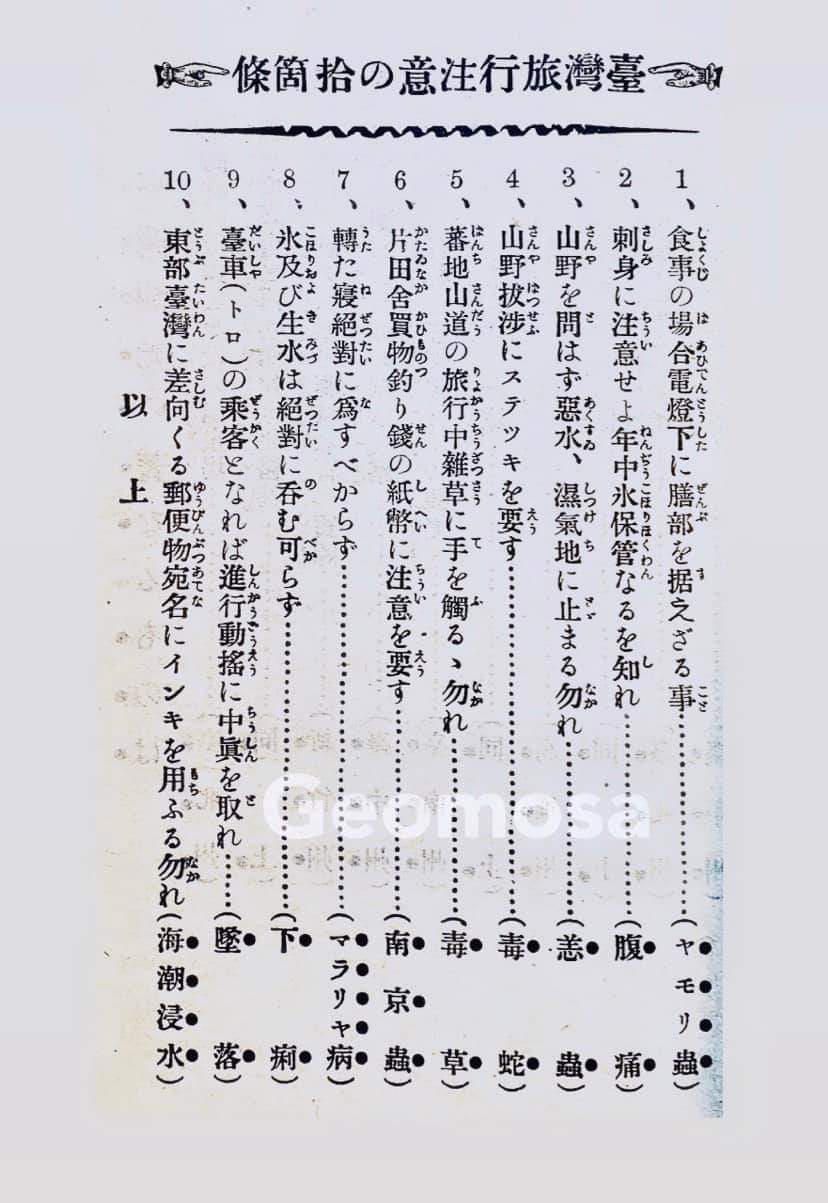 臺灣旅行注意の拾箇條
1、食事の場合電燈下に膳部を据えざる事……(ヤモリ蟲)
2、刺身に注意せよ年中氷保管なるを知れ……(腹痛)
3、山野を問はず惡水、濕氣地に止まる勿れ……(恙蟲)
4、山野拔涉にステツキを要す……(毒蛇)
5、蕃地山道の旅行中雜草に手を觸るゝ勿れ……(毒草)
6、片田舍買物釣り錢の紙幣に注意を要す……(南京蟲)
7、轉た寢絕對に爲すべからず……(マラリヤ病)
8、氷及び生水は絕對に呑む可らず……(下痢)
9、臺車(トロ)の乘客となれば進行動搖に中眞を取れ……(墜落)
10、東部臺灣に差向くる郵便物宛名にインキを用ふる勿れ(海潮浸水)
以上
Geomosa